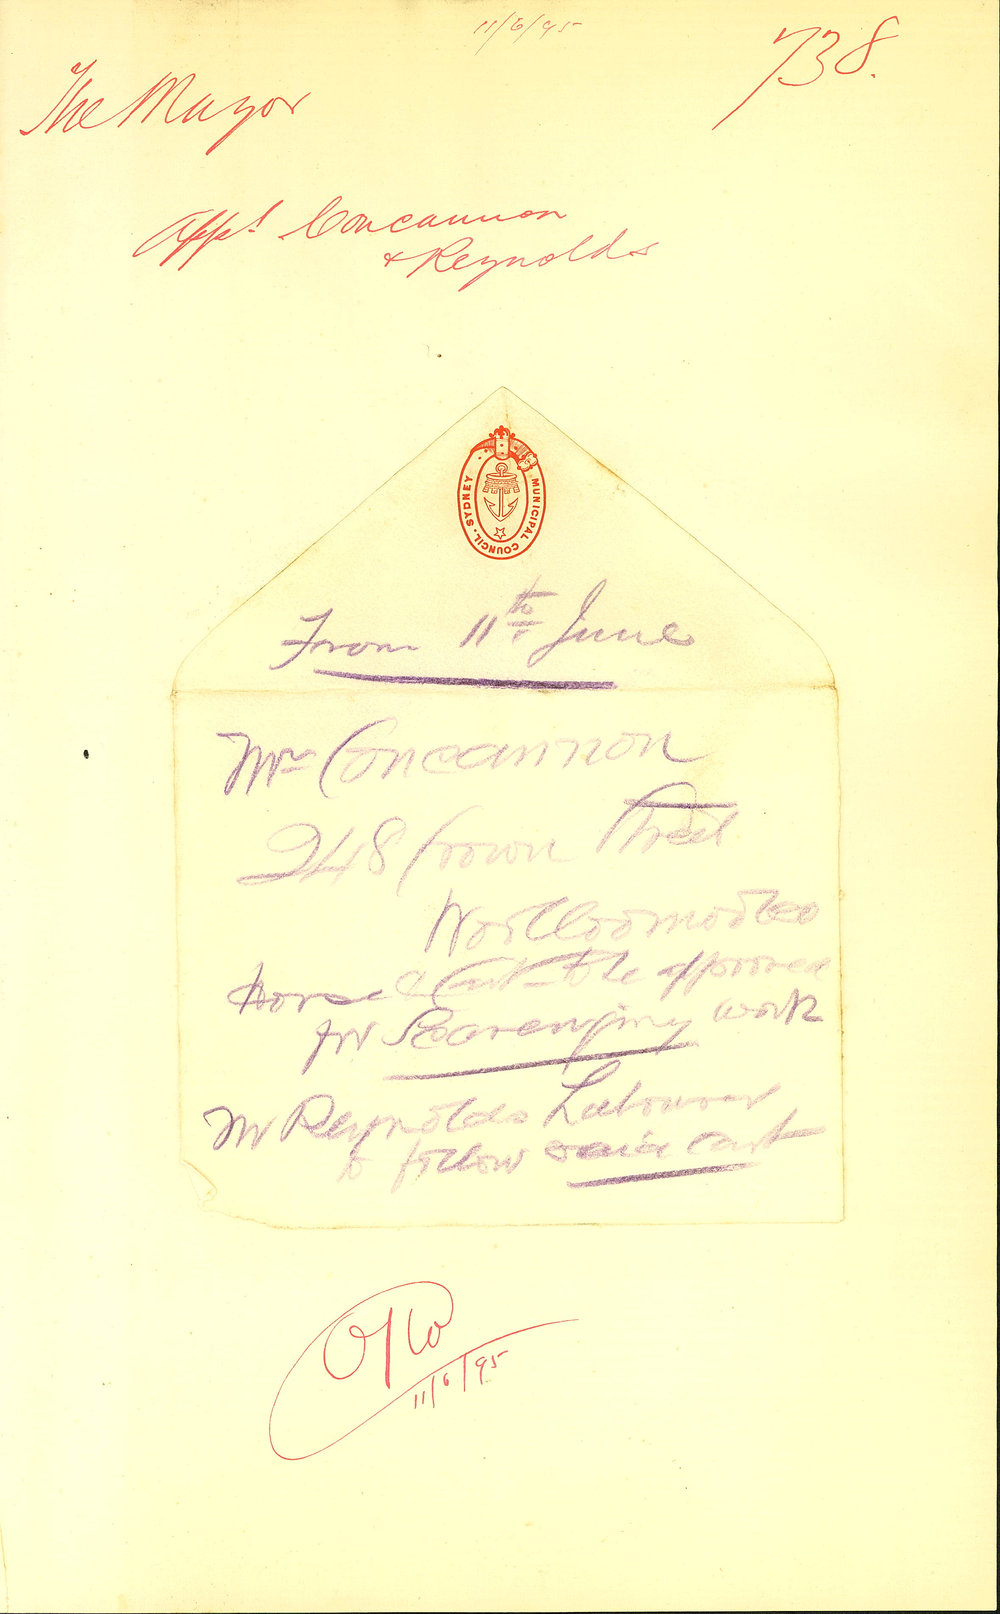 11/6/95
738.
The Mayor
Appt Concannon
& Reynolds
SYDNEY MUNICIPAL COUNCIL.
From 11th June
Mrs Concannon
248 Crown Street
Woolloomooloo
Horse & Cart to be approved
for Scavenging work
Mr Reynolds Labourer
to follow said cart
11/6/95